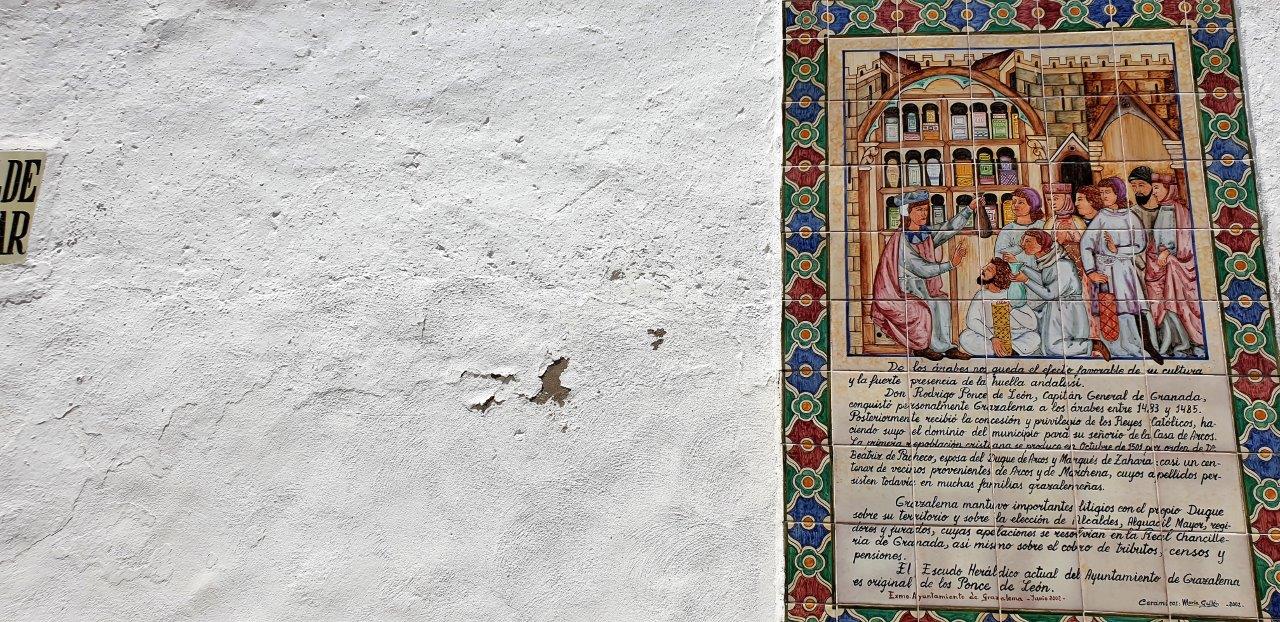 DE
AR
De los árabes nos queda el efecto favorable de su cultura
y la fuerte presencia de la huella andalusí.
Don Rodrigo Ponce de León, Capitán General de Granada,
conquistó personalmente Grazalema a los árabes entre 1483 y 1485.
Posteriormente recibió la concesión y privilegio de los Reyes Católicos, ha-
ciendo suyo el dominio del municipio para su señorio de la Casa de Arcos.
La primera repoblación cristiana se produce en Octubre de 1501 por orden de Dª
Beatriz de Pacheco, esposa del Duque de Arcos y Marqués de Zahara: casi un cen-
tenar de vecinos provenientes de Arcos y de Marchena, cuyos apellidos per-
sisten todavía en muchas familias grazalemeñas.
Grazalema mantuvo importantes litigios con el propio Duque
sobre su territorio y sobre la elección de Alcaldes, Alguacil Mayor, regi-
dores y jurados, cuyas apelaciones se resolvían en la Real Chancille-
ría de Granada, así mismo sobre el cobro de tributos, censos y
pensiones.
El Escudo Heráldico actual del Ayuntamiento de Grazalema
es original de los Ponce de León.
Exmo. Ayuntamiento de Grazalema - Junio 2002 -
Cerámicas: María Guillén - 2002.